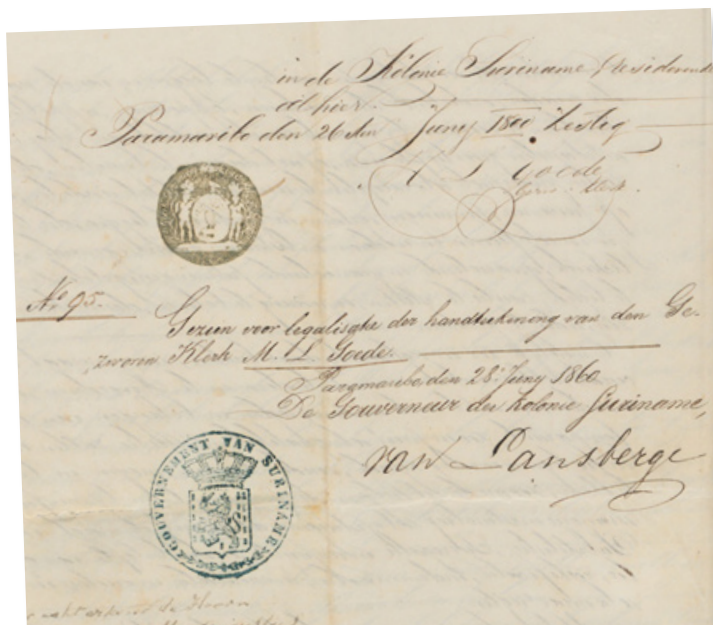 in de Kolonie Suriname Presideerende
alhier.
Paramaribo den 26sten Juny 1800 Zestig
Goede
Gezw: Klerk.
No. 95.
Gezien voor legalisatie der handteekening van den Ge-
zworen Klerk M. S. Goede.
Paramaribo den 28n Juny 1860
De Gouverneur der Kolonie Suriname,
van Lansberge
GOUVERNEMENT VAN SURINAME